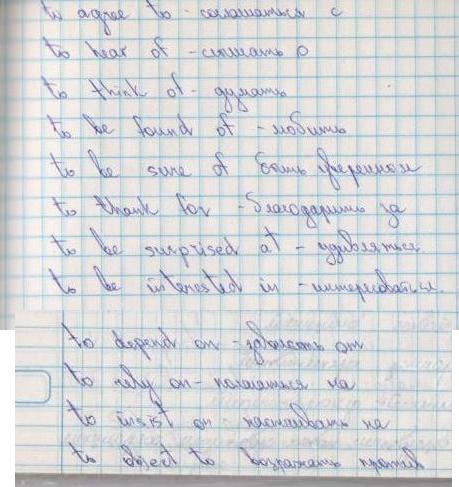 to agree to - соглашаться с
to hear of - слышать о
to think of - думать
to be found of - любить
to be sure of быть уверенном
to thank for - благодарить за
to be surprised at - удивляться
to be interested in - интересоваться
to depend on - зависить от
to rely on - полагаться на
to insist on настаивать на
to object to возражать против